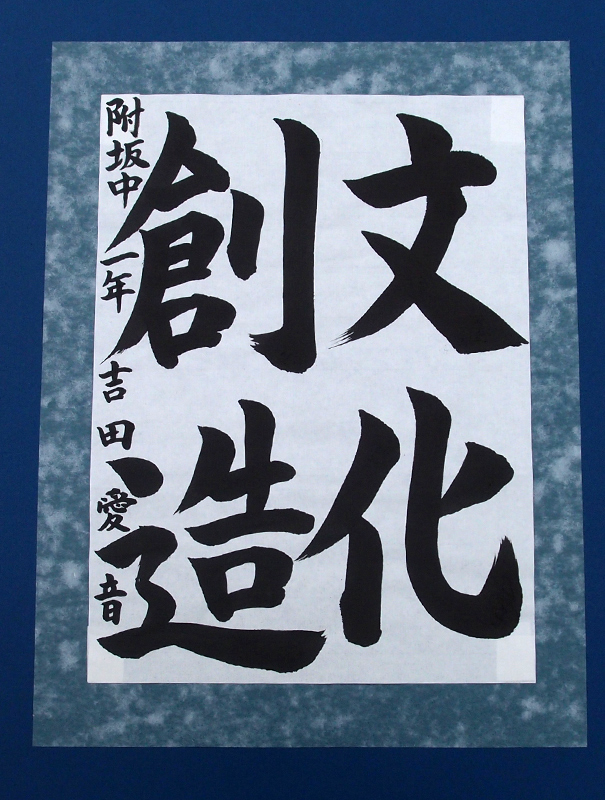 文化
創造
附坂中 一年 吉田愛音